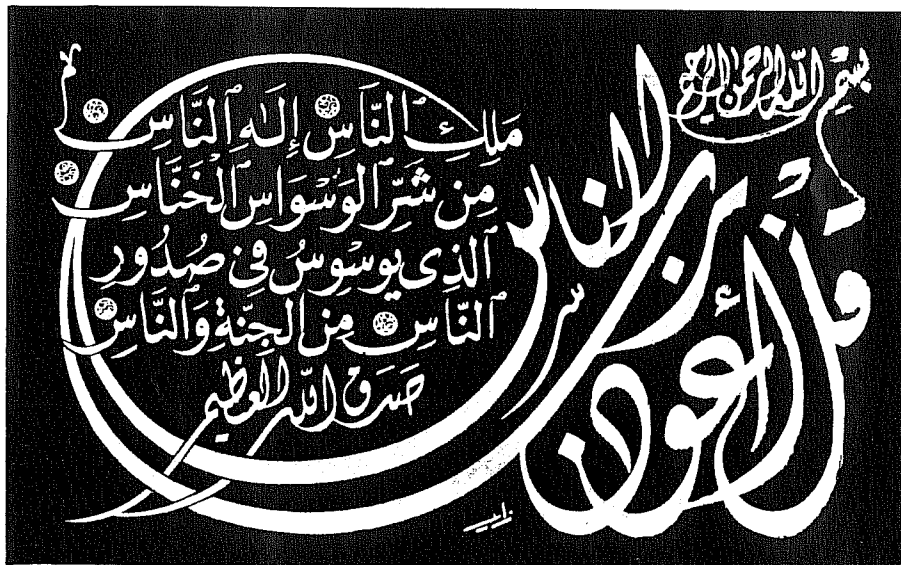 بِسْمِ اللّٰهِ الرَّحْمٰنِ الرَّحِيمِ
قل أعوذ برب الناس
مَلِكِ ٱلنَّاسِ إِلَٰهِ ٱلنَّاسِ
مِن شَرِّ ٱلْوَسْوَاسِ ٱلْخَنَّاسِ
ٱلَّذِى يُوَسْوِسُ فِى صُدُورِ
ٱلنَّاسِ مِنَ ٱلْجِنَّةِ وَٱلنَّاسِ
صدق الله العظيم